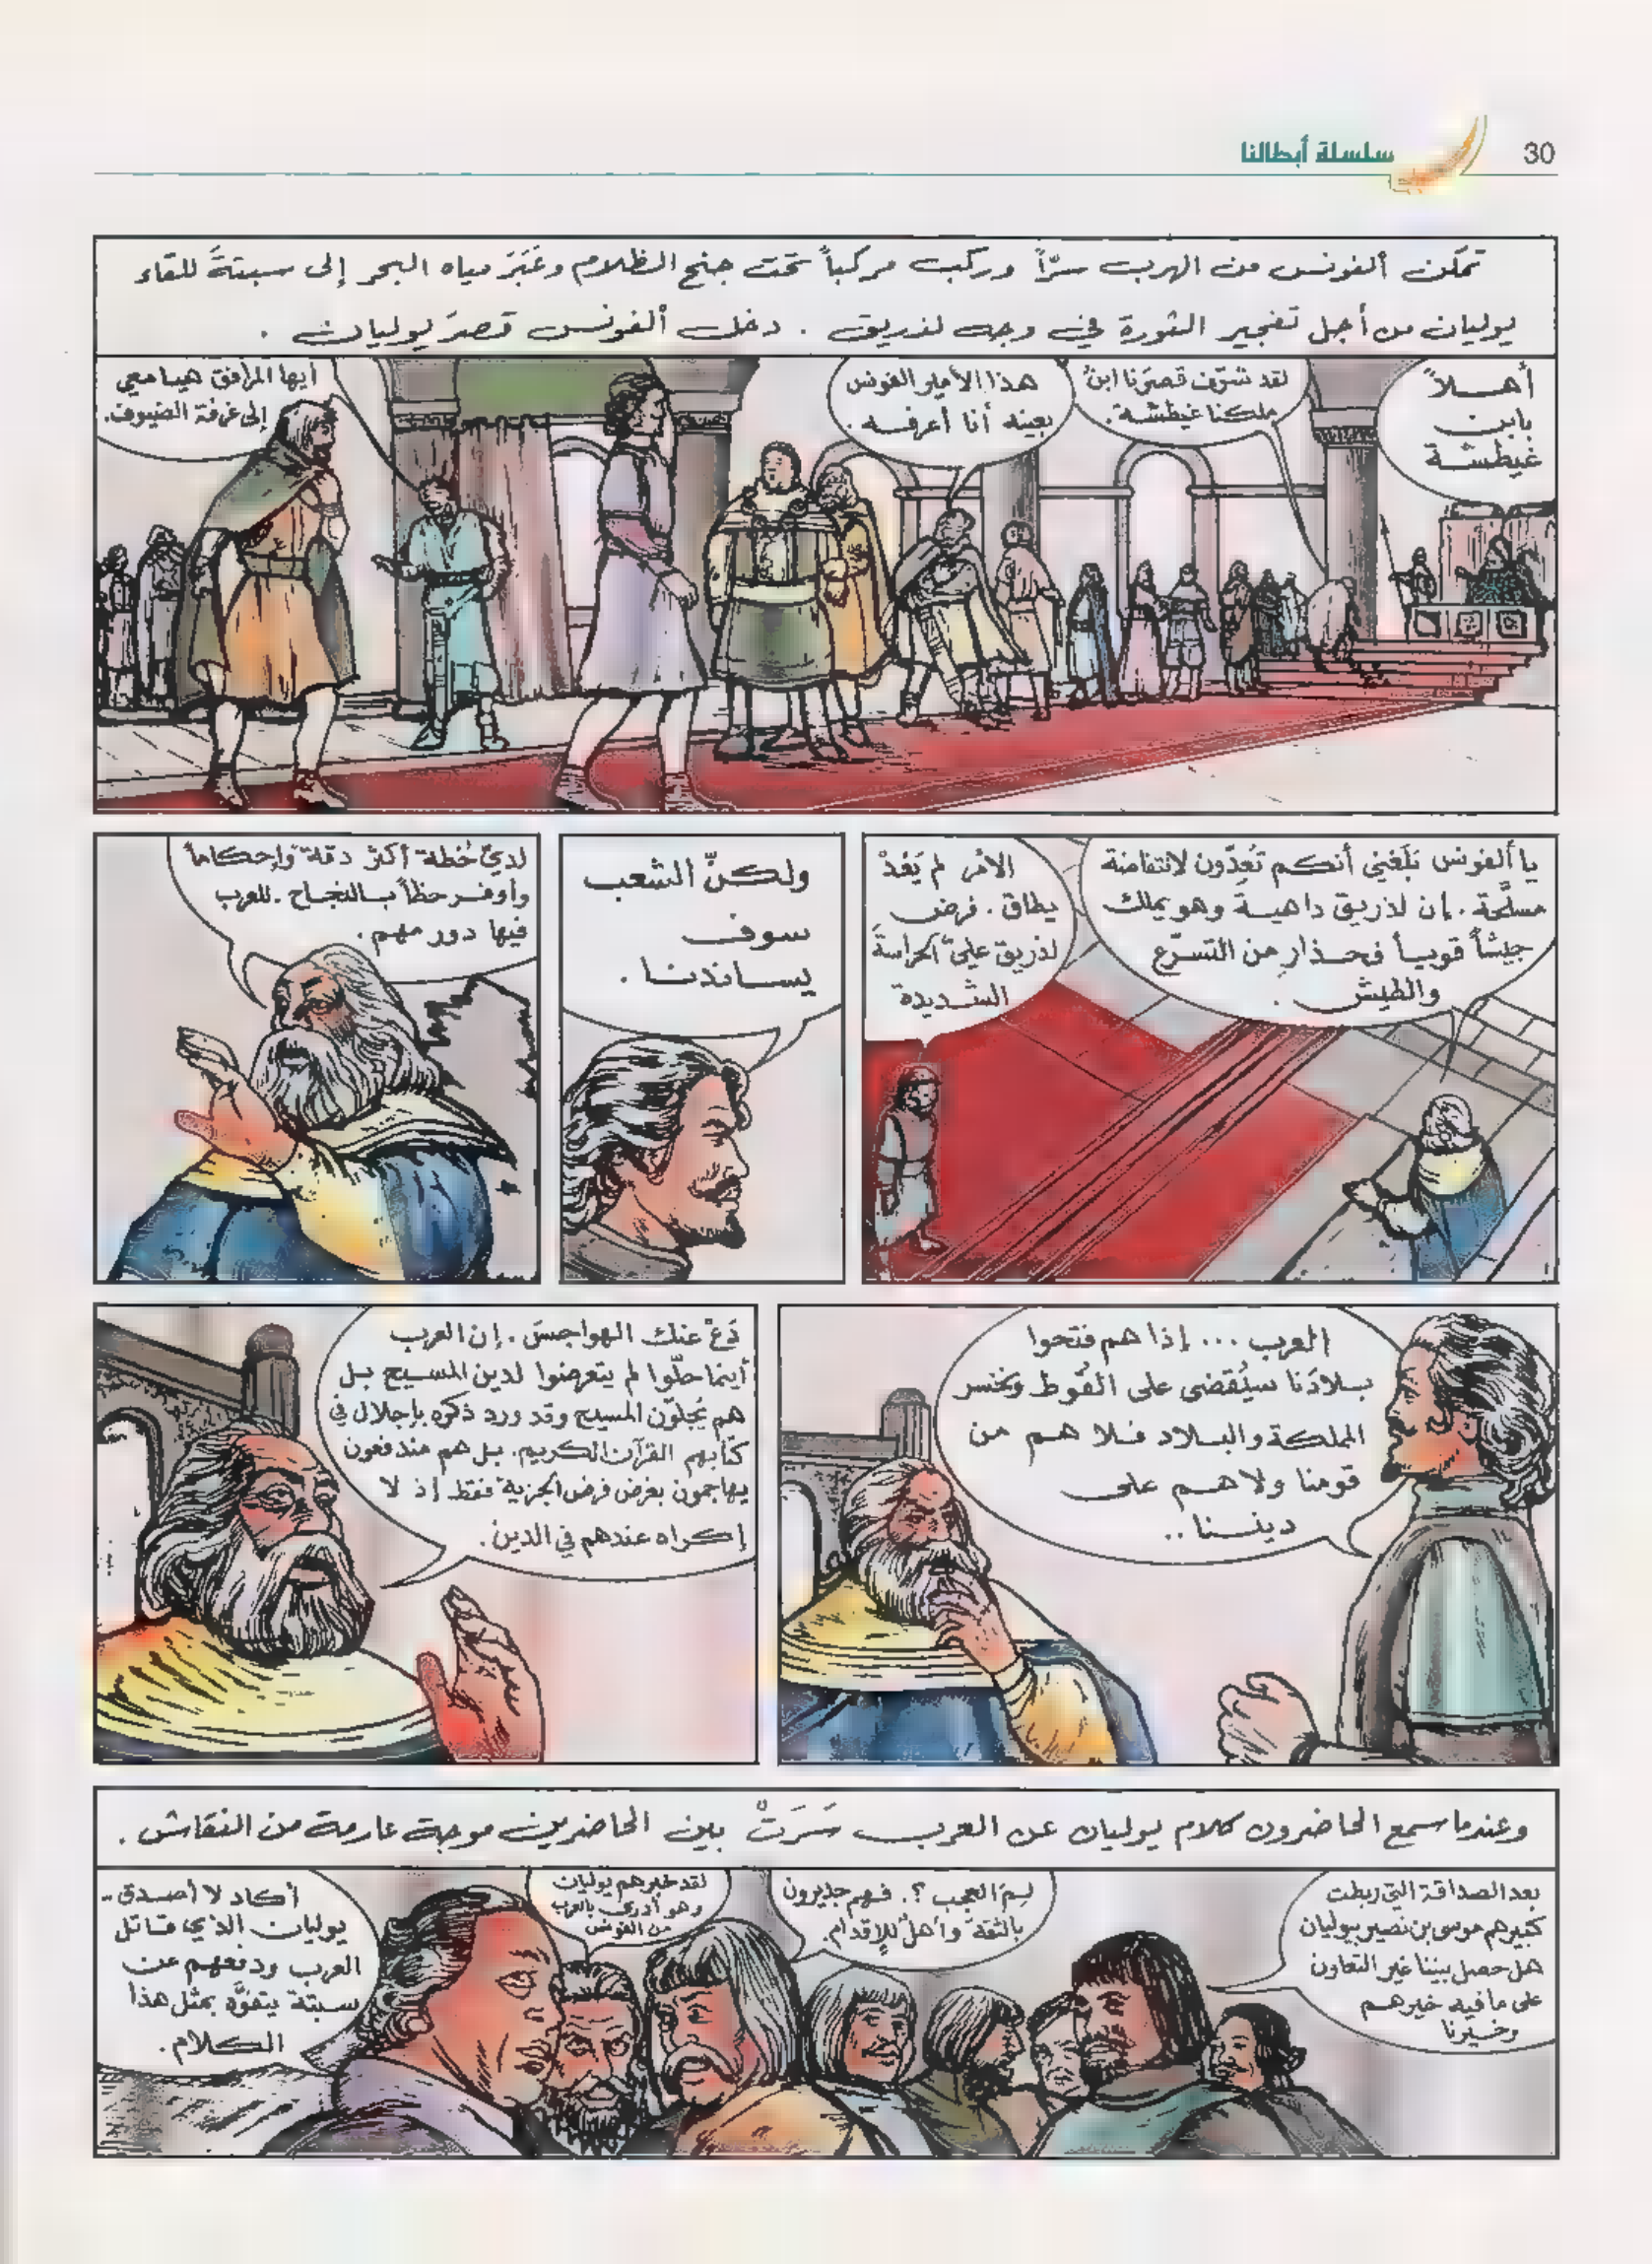 30
سلسلة أبطالنا
تمكن ألفونس من الهرب سرّاً وركب مركباً تحت جنح الظلام وعَبَرَ مياه البحر إلى سبتةَ للقاء
يوليان من أجل تفجير الثورة في وجه لذريق . دخل ألفونس قصرَ يوليان .
أهلاً
بابن
غيطشة
لقد شرّف قصرَنا ابنُ
ملكنا غيطشة.
هذا الأمير الفونس
بعينه أنا أعرفه .
أيها المرافق هيا معي
إلى غرفة الضيوف.
يا ألفونس بَلَغني أنكم تُعِدّون لانتفاضة
مسلّحة . إن لذريق داهيةَ وهو يملك
جيشاً قوياً فحذارِ من التسرّع
والطيش .
الأمر لم يَعُدْ
يطاق . فرض
لذريق عليّ الحراسةَ
الشديدة
ولكنّ الشعب
سوف
يساندنا .
لديّ خُطة أكثر دقة وإحكاماً
وأوفر حظاً بالنجاح . للعرب
فيها دور مهم .
العرب ... إذا هم فتحوا
بلادَنا سيُقضى على القُوط ونخسر
المملكة والبلاد فلا هم من
قومنا ولا هم على
ديننا ..
دَعْ عنك الهواجسَ . إن العرب
أينما حلّوا لم يتعرضوا لدين المسيح بل
هم يُجلّون المسيح وقد ورد ذكره بإجلال في
كتابهم القرآن الكريم. بل هم مندفعون
يهاجمون بغرض فرض الجزية فقط إذ لا
إكراه عندهم في الدين .
وعندما سمع الحاضرون كلام يوليان عن العرب سَرَتْ بين الحاضرين موجة عارمة من النقاش .
بعد الصداقة التي ربطت
كبيرهم موسى بن نصير بيوليان
هل حصل بيننا غير التعاون
على ما فيه خيرهم
وخيرنا
لِمَ العجب ؟. فهم جديرون
بالثقة وأهلٌ للإقدام.
لقد خبرهم يوليان
وهو أدرى بالعرب
من الفونس
أكاد لا أصدق ..
يوليان الذي قاتل
العرب ودفعهم عن
سبتة يتفوَّه بمثل هذا
الكلام .